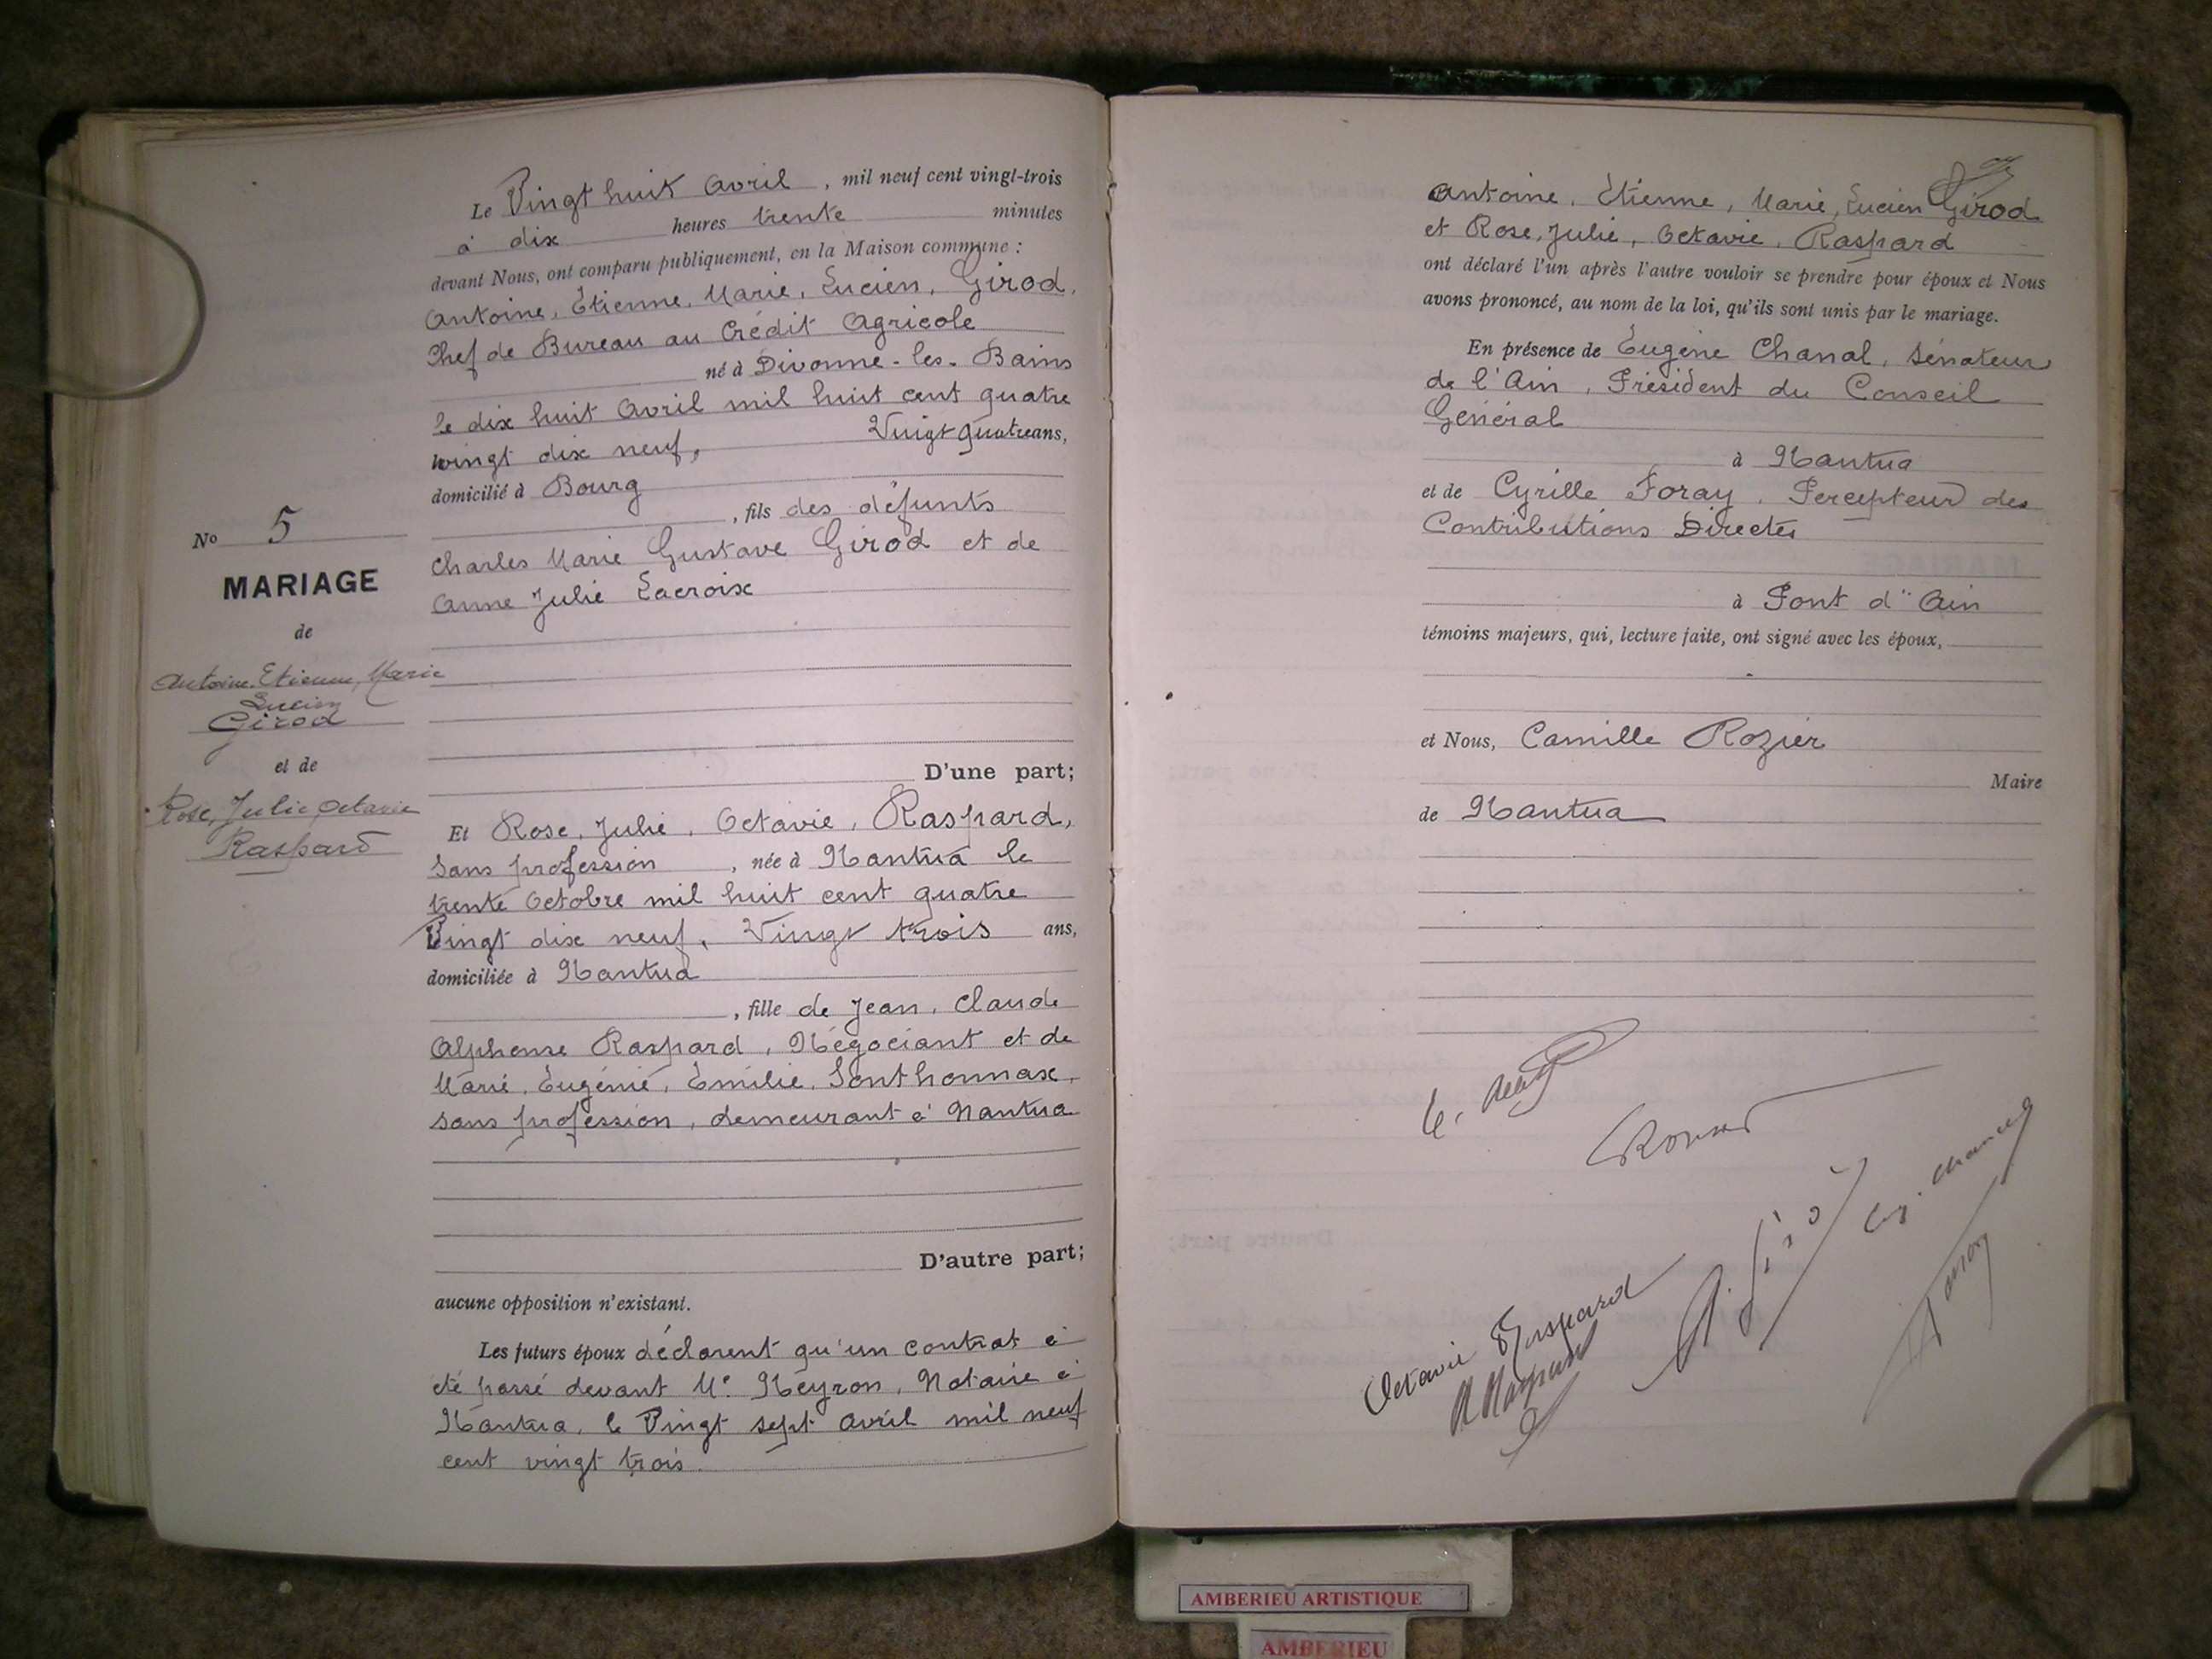 No 5
MARIAGE
de
Antoine, Etienne, Marie
Lucien
Girod
et de
Rose, Julie, Octavie
Raspard
Le Vingt huit Avril, mil neuf cent vingt-trois
à dix heures trente minutes
devant Nous, ont comparu publiquement, en la Maison commune :
Antoine, Étienne, Marie, Lucien, Girod,
Chef de Bureau au Crédit Agricole
né à Divonne-les-Bains
le dix huit Avril mil huit cent quatre
vingt dix neuf, Vingt quatre ans,
domicilié à Bourg
, fils des défunts
Charles Marie Gustave Girod et de
Anne Julie Lacroix
D'une part;
Et Rose, Julie, Octavie, Raspard,
sans profession, née à Nantua le
trente Octobre mil huit cent quatre
Vingt dix neuf, Vingt trois ans,
domiciliée à Nantua
, fille de Jean, Claude
Alphonse Raspard, Négociant et de
Marie, Eugénie, Emilie, Sonthonnax,
sans profession, demeurant à Nantua
D'autre part;
aucune opposition n'existant.
Les futurs époux déclarent qu'un contrat a
été passé devant Me Neyron, Notaire à
Nantua, le Vingt sept avril mil neuf
cent vingt trois.
Antoine, Étienne, Marie, Lucien Girod
et Rose, Julie, Octavie, Raspard
ont déclaré l'un après l'autre vouloir se prendre pour époux et Nous
avons prononcé, au nom de la loi, qu'ils sont unis par le mariage.
En présence de Eugène Chanal, Sénateur
de l'Ain, Président du Conseil
Général
à Nantua
et de Cyrille Foray, Percepteur des
Contributions Directes
à Pont d'Ain
témoins majeurs, qui, lecture faite, ont signé avec les époux,
et Nous, Camille Rozier
Maire
de Nantua
Eug. Chanal
A. Girod
Foray
Octavie Raspard
AMBERIEU ARTISTIQUE
AMBERIEU